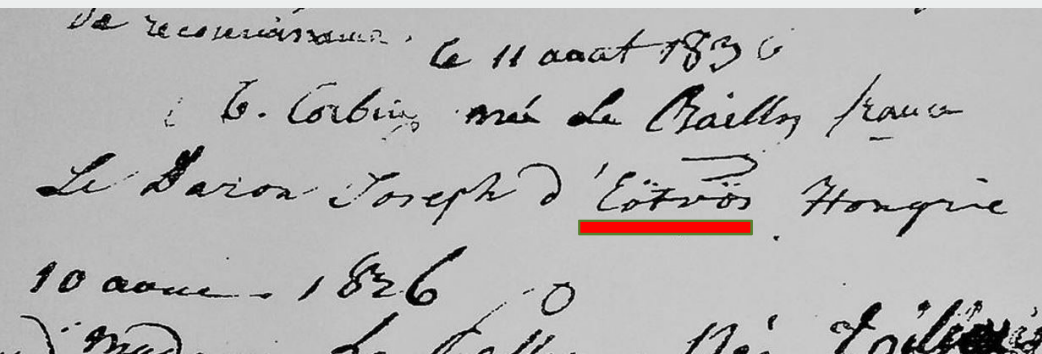 de reconnaissance.
le 11 aout 1836
E. Corbin née Le Bailly france
Le Baron Joseph d'Eötvös Hongrie
10 aout. 1836
Mad Le